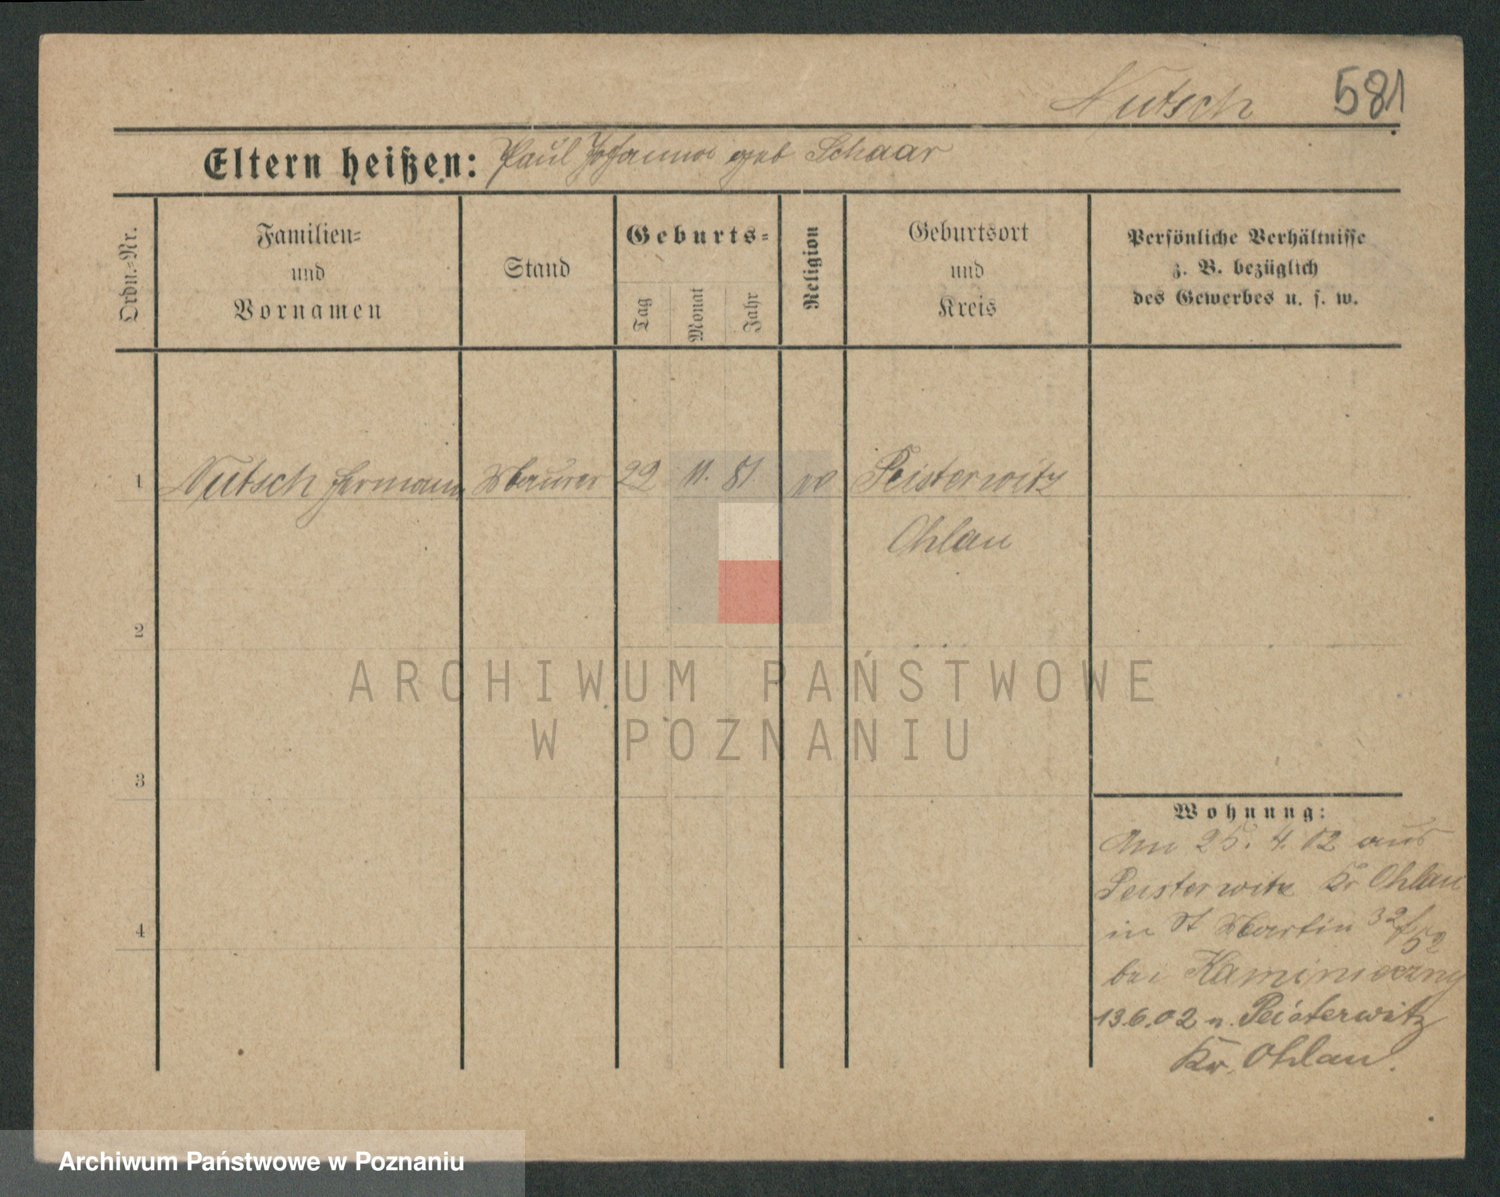 Nutsch 581
Eltern heißen: Paul Johanna geb Schaar
Ordn.-Nr.
Familien-
und
Vornamen
Stand
Geburts-
Tag
Monat
Jahr
Religion
Geburtsort
und
Kreis
Persönliche Verhältnisse
z. B. bezüglich
des Gewerbes u. s. w.
1 Nutsch Hermann Maurer 22 11. 81. Peisterwitz
Ohlau
2
3
4
Wohnung:
Am 25. 4. 02 aus
Peisterwitz Kr Ohlau
in St Martin 32/52
bei
13.6.02 n. Peisterwitz
Kr. Ohlau.
ARCHIWUM PAŃSTWOWE
W POZNANIU
Archiwum Państwowe w Poznaniu